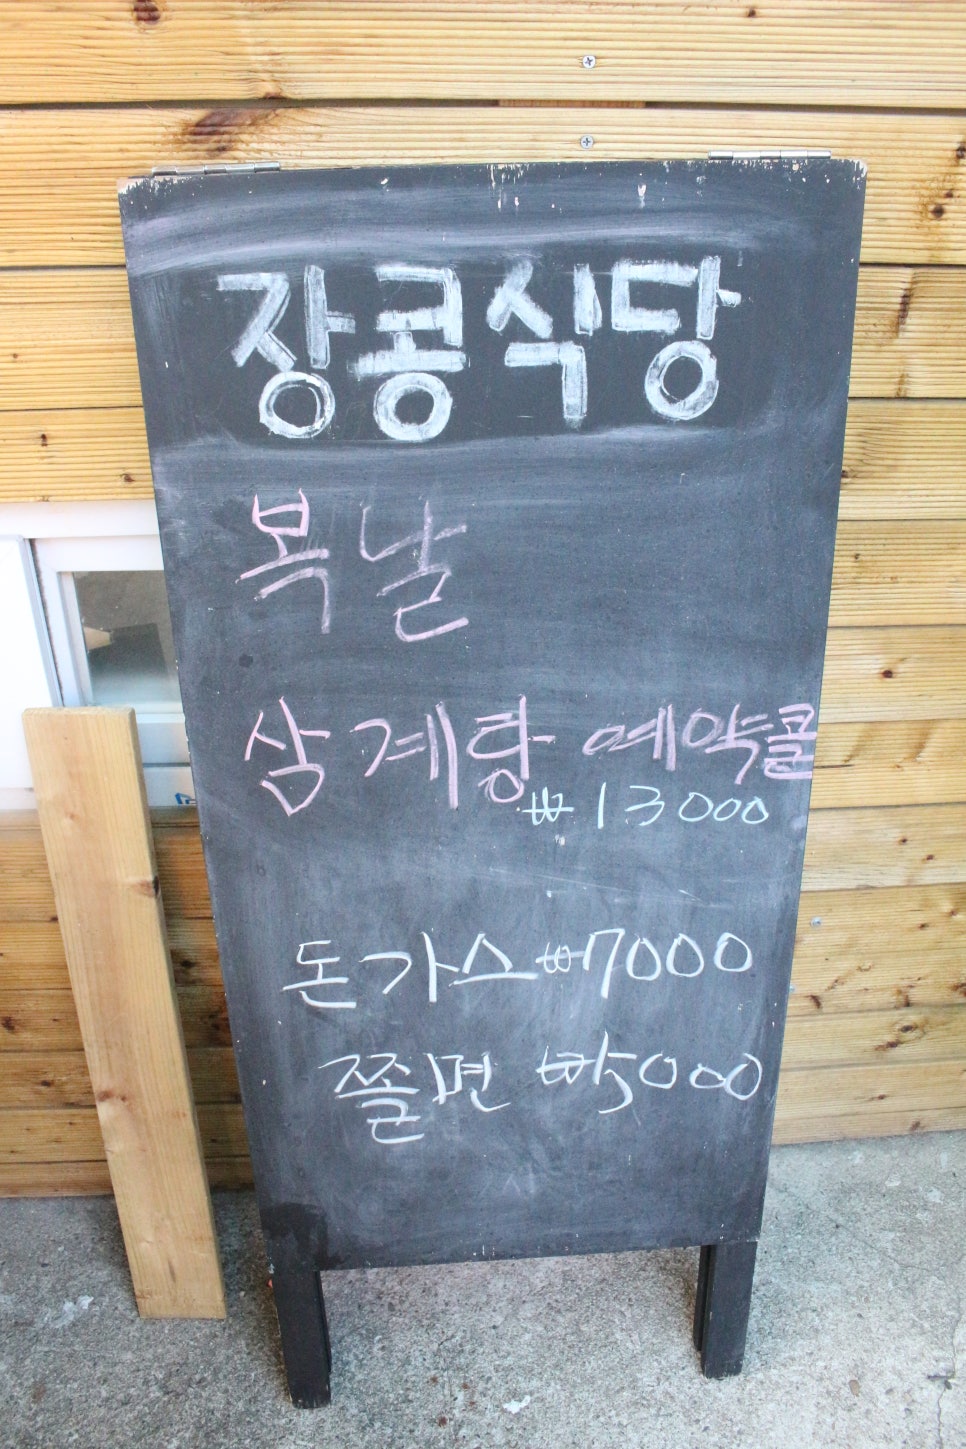 장콩식당
복날
삼계탕 예약콜
₩13000
돈가스 ₩7000
쫄면 ₩5000